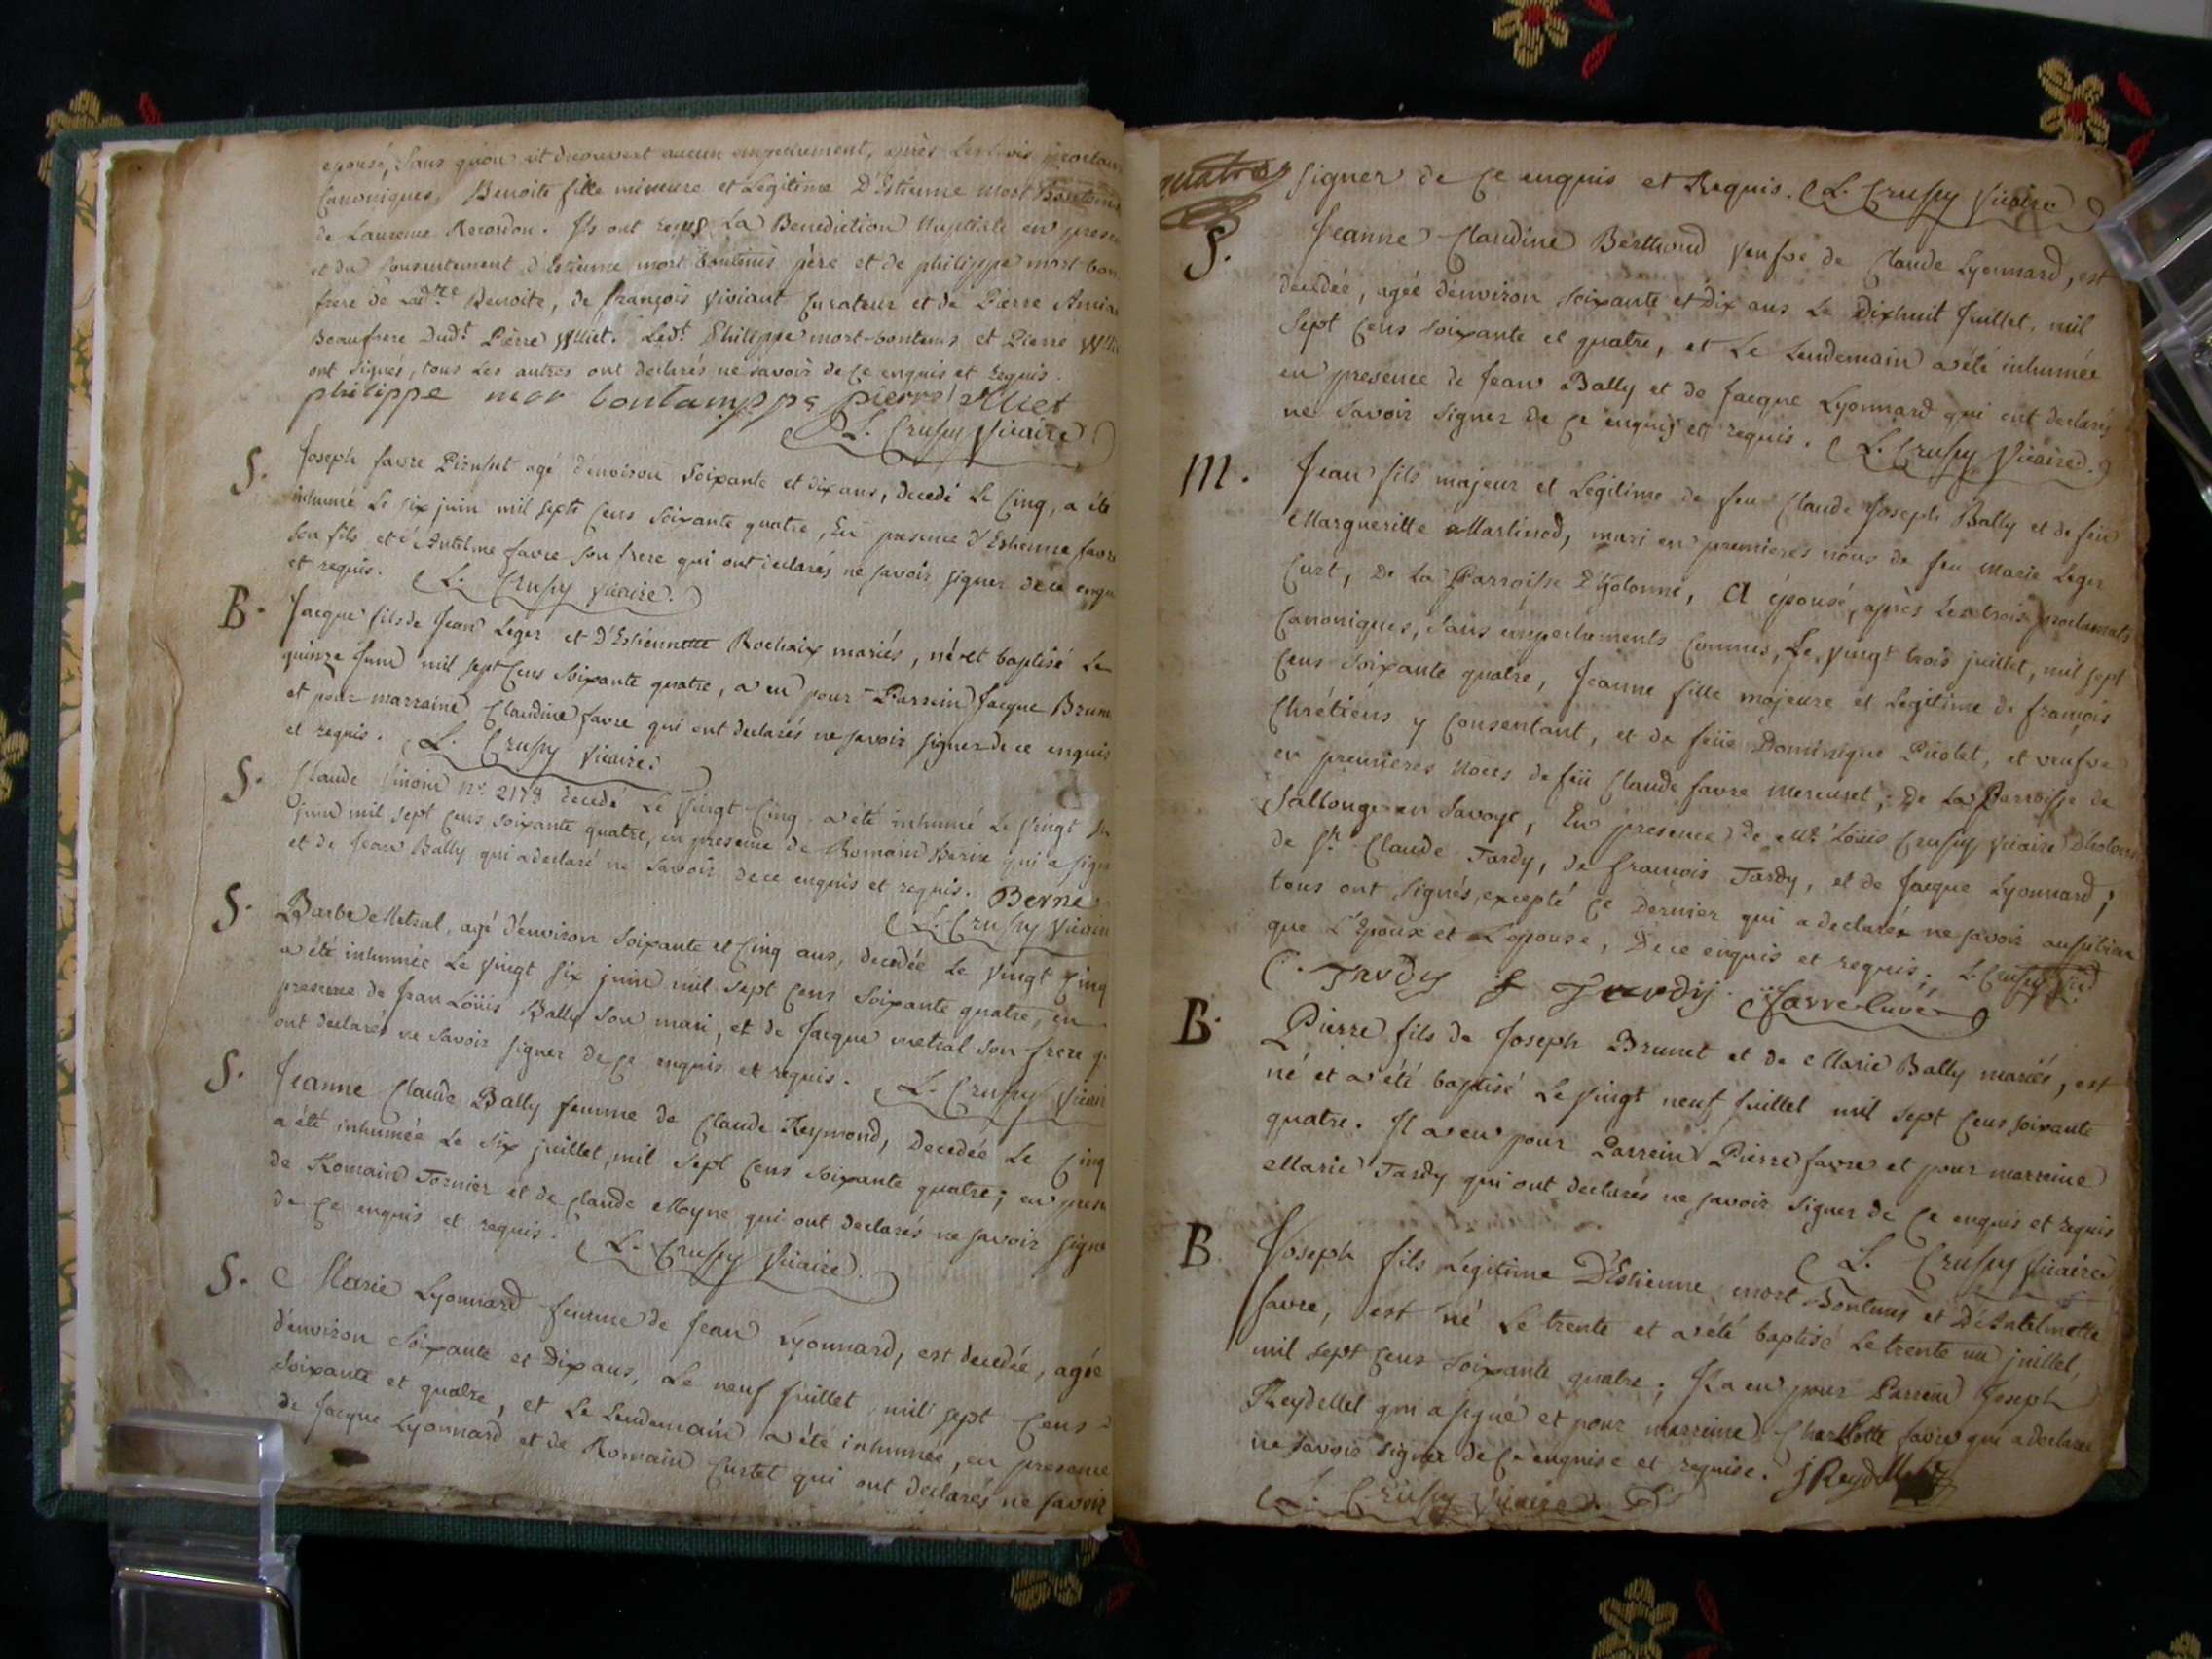 epousé, sans qu'on ait decouvert aucun empechement, après les trois proclam
Canoniques, Benoite fille mineure et Legitime D'Estienne mort Bontems
de Laurence Recordon. Ils ont reçus La Benediction Nuptiale en prese
et du consentement d'Estienne mort bontems père et de philippe mort bon
frere de Lad.te Benoite, de françois Viviant Curateur et de Pierre
Beaufrere Dud.t Pierre Ylliet. Led.t Philippe mort-bontems et Pierre
ont signés, tous Les autres ont declarés ne savoir de ce enquis et requis.
philippe mor bontampps pierre Alliet
L. Crussy Vicaire
S. Joseph favre agé d'environ Soixante et dix ans, decedé Le Cinq, a été
inhumé Le six juin mil sept cens soixante quatre, En presence d'Estienne favre
son fils et d'Antelme favre son frere qui ont declarés ne savoir signer de ce enqu
et requis. L. Crussy Vicaire.
B. Jacque fils de Jean Leger et D'Estiennette Rochaix mariés, né et baptisé Le
quinze Juin mil sept cens soixante quatre, a eu pour Parrein Jacque Brun
et pour marraine Claudine favre qui ont declarés ne savoir signer de ce enquis
et requis. L. Crussy Vicaire.
S. Claude n.º 2179 decedé Le Vingt Cinq a été inhumé Le Vingt
juin mil sept cens soixante quatre, en presence de Romain qui a sign
et de Jean Bally qui a declaré ne savoir de ce enquis et requis. Berne
L. Crussy Vicaire
S. Barbe Metral, agé d'environ soixante et Cinq ans, decedée Le Vingt Cinq
a été inhumée Le Vingt six juin mil sept cens soixante quatre, en
presence de Jean Loüis Bally son mari, et de Jacque metral son frere q
ont declarés ne savoir signer de ce enquis et requis. L. Crussy Vicair
S. Jeanne Claude Bally femme de Claude Reymond, Decedée Le Cinq
a été inhumée Le Six juillet, mil sept cens soixante quatre; en prese
de Romain Tornier et de Claude Moyne qui ont declarés ne savoir signe
de ce enquis et requis. L. Crussy Vicaire.
S. Marie Lyonnard femme de Jean Lyonnard, est decedée, agée
d'environ soixante et Dix ans, Le neuf Juillet mil sept cens
soixante et quatre, et Le Lendemain a été inhumée, en presence
de Jacque Lyonnard et de Romain Curtet qui ont declarés ne savoir
quatre signer de ce enquis et Requis. L. Crussy Vicaire
S. Jeanne Claudine Berthoud veufve de Claude Lyonnard, est
decedée, agée d'environ soixante et Dix ans Le Dixhuit Juillet, mil
sept cens soixante et quatre, et Le Lendemain a été inhumée
en presence de Jean Bally et de Jacque Lyonnard qui ont declarés
ne savoir signer de ce enquis et requis. L. Crussy Vicaire.
M. Jean fils majeur et Legitime de feu Claude Joseph Bally et de feu
Margueritte Martinod, mari en premieres nôces de feu Marie Leger
Curt, De La Parroisse D'hotonne, A épousé, après Les trois proclamats
Canoniques, sans empechements Connus, Le Vingt trois juillet, mil sept
cens soixante quatre, Jeanne fille majeure et Legitime de françois
Chrétiens y Consentant, et de feüe Dominique Picolet, et veufve
en premieres nôces de feü Claude favre Mercuset; De La Parroisse de
Sallonge en Savoye, En presence de M.r Loüis Crussy Vicaire D'hotonne
de S.r Claude Tardy, de françois Tardy, et de Jacque Lyonnard;
tous ont signés, excepté ce Dernier qui a declarés ne savoir aussi bien
que L'Epoux et L'epouse, De ce enquis et requis; L. Crussy Vic
C. Tardy f Tardy. Favre Curé
B. Pierre fils de Joseph Brunet et de Marie Bally mariés, est
né et a été baptisé Le Vingt neuf Juillet mil sept cens soixante
quatre. Il a eu pour Parrein Pierre favre et pour marreine
Marie Tardy qui ont declarés ne savoir signer de ce enquis et requis
L. Crussy Vicaire
B. Joseph fils Légitime D'Estienne mort Bontems et D'Antelmette
favre, est né Le trente et a été baptisé Le trente un juillet,
mil sept cens soixante quatre; Il a eu pour Parrein Joseph
Reydellet qui a signé et pour marreine Charlotte favre qui a declaré
ne savoir signer de ce enquise et requise. J Reydellet
L. Crussy Vicaire.